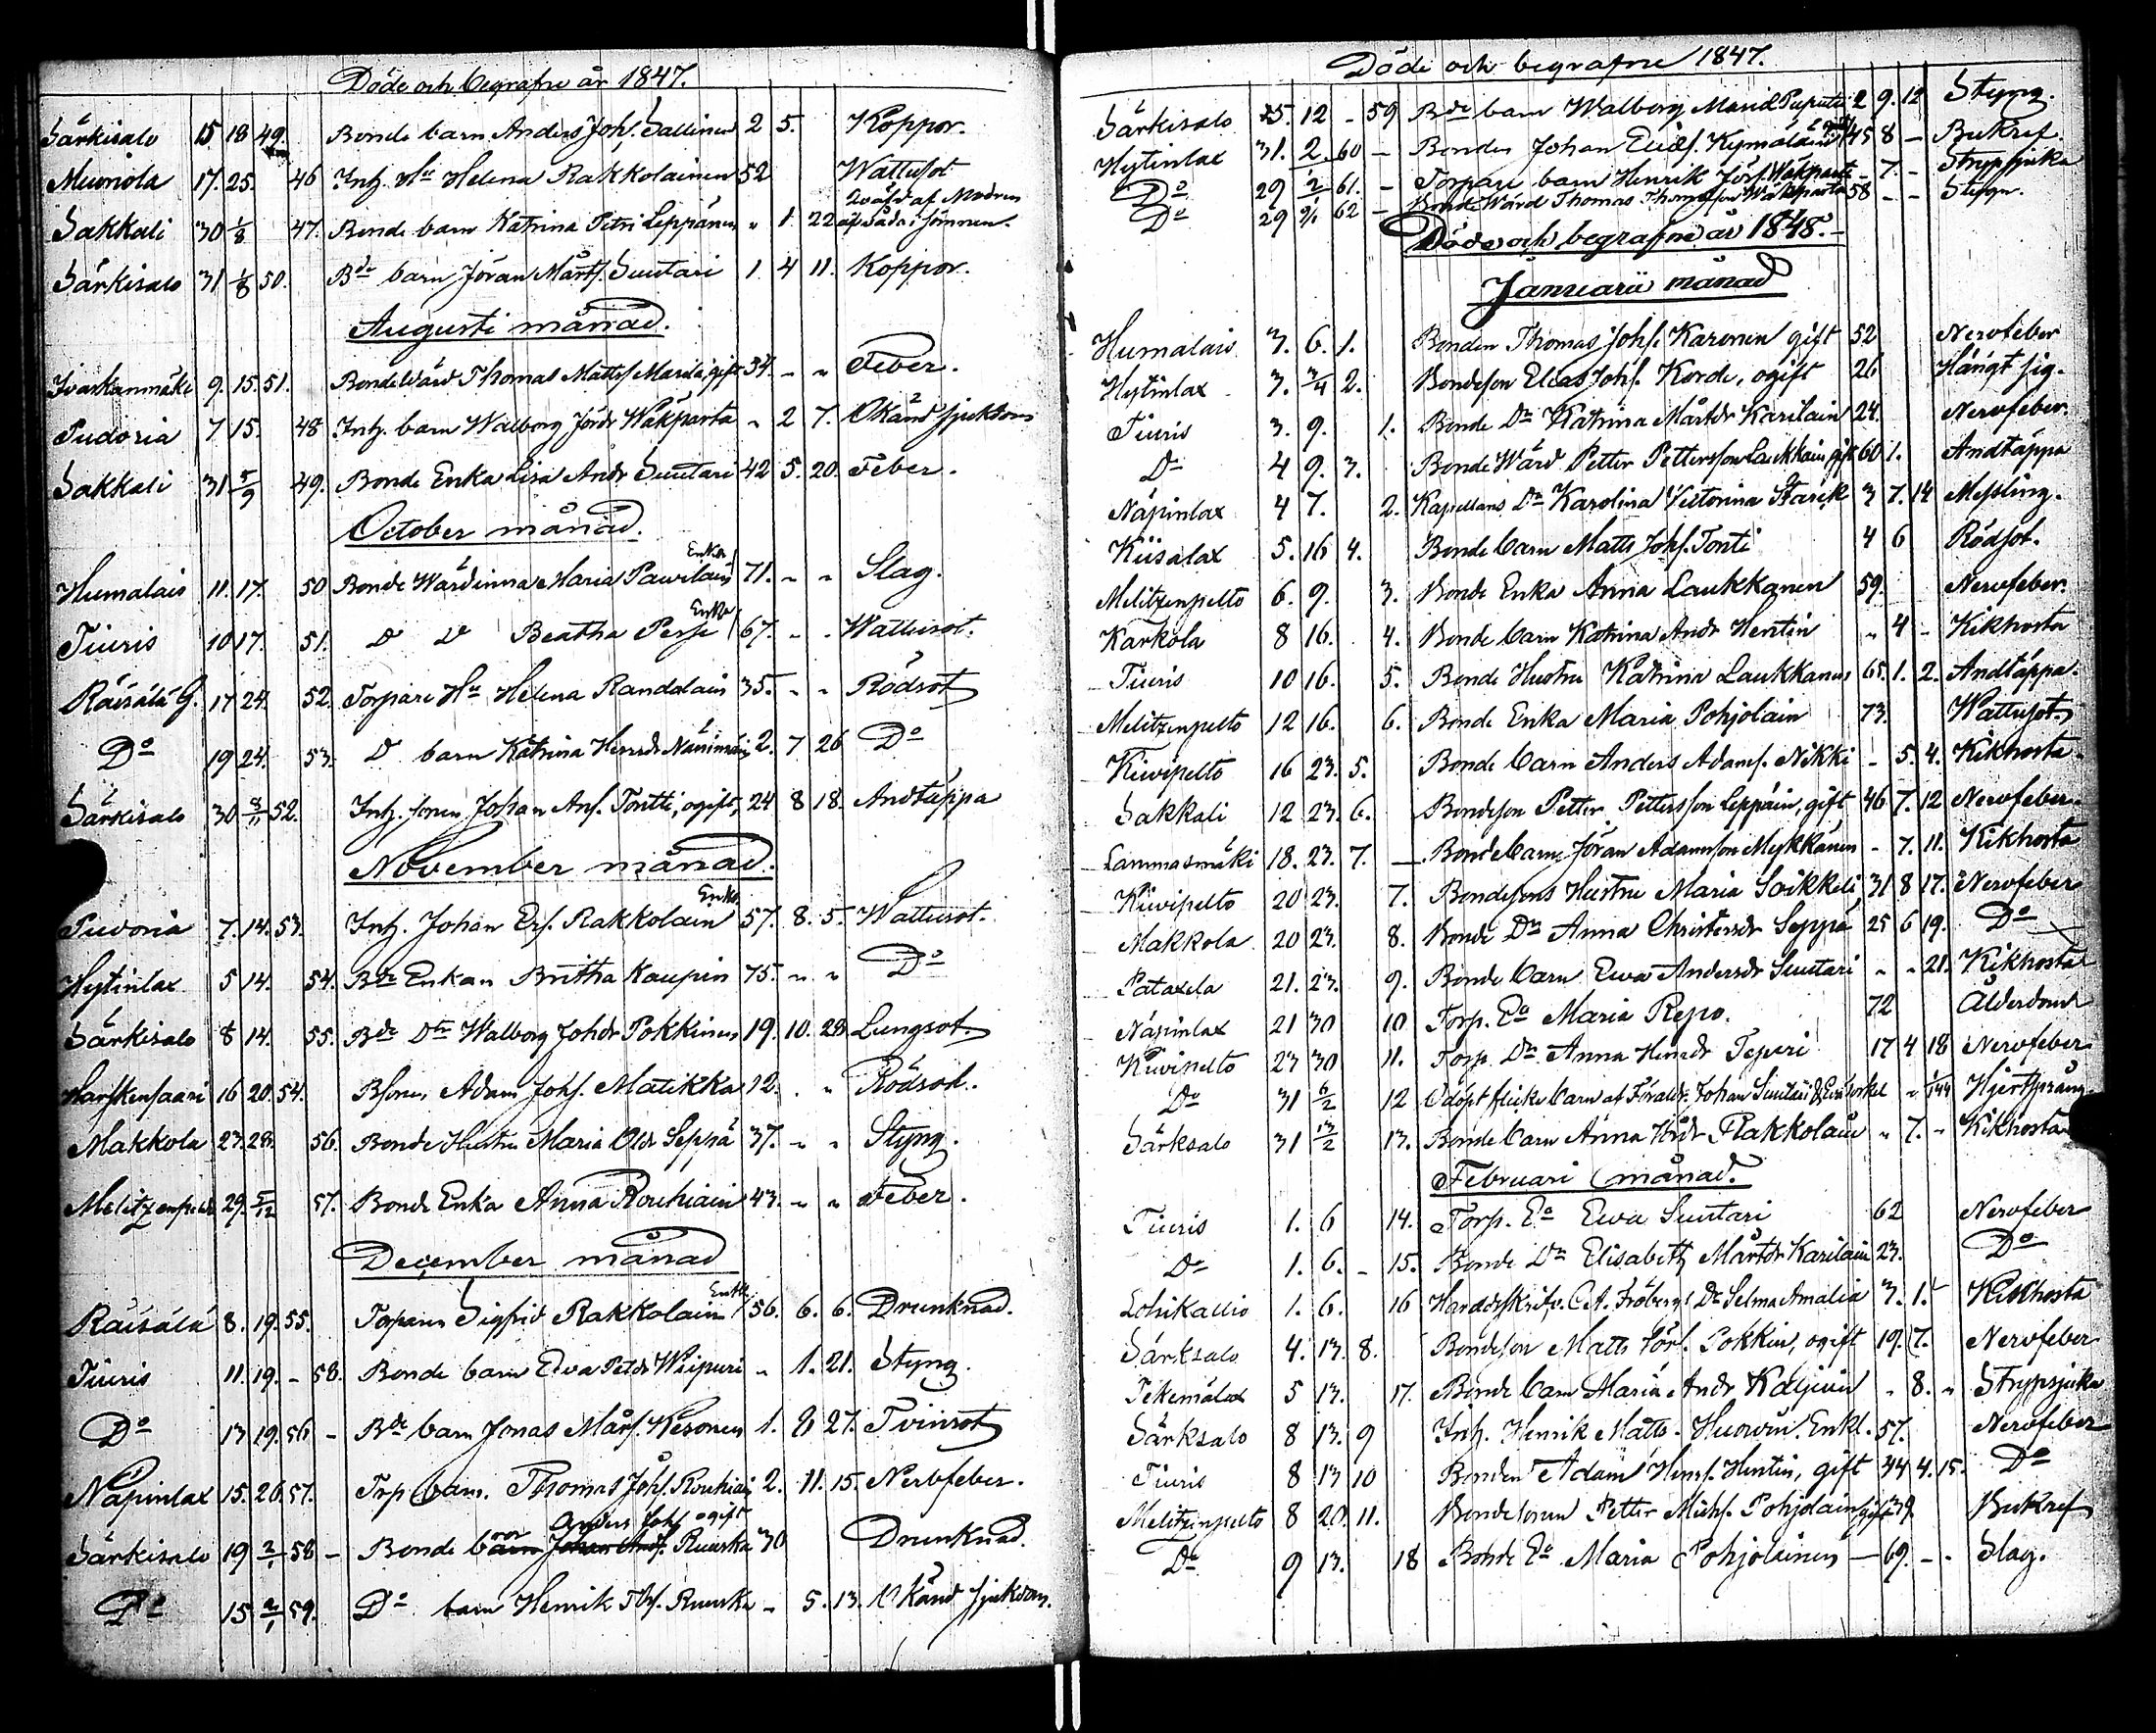 Döde och begrafne år 1847.
Särkisalo 15 18 49. Bonde barn Anders Joh. Sallinen 2 5. Koppor.
Muoriola 17. 25. 46 Inh. Hu Helena Rakkolainen 52 Wattusot
Qväfd af Modren
Sakkali 30 1/8 47. Bonde barn Katrina Petri Leppänen " 1. 22 af våda i sömnen.
Särkisalo 31 1/8 50. Bde barn Jöran Mårts. Suutari 1. 4 11. Koppor.
Augusti månad.
Ivaskanmäki 9. 15. 51. Bonde Wärd Thomas Matts. Marila, gift 34. - " Feber.
Pudoria 7 15. 48 Inh. barn Walborg Jördr Wäkiparta - 2 7. Okänd sjukdom
Sakkali 31 5/9 49. Bonde Enka Lisa Andr Suutari 42 5. 20. Feber.
October månad.
Humalais 11. 17. 50 Bonde Wärdinna Maria Pawilain Enka 71. " " Slag.
Tiuris 10 17. 51. D D Beatha Perse Enka 67. - - Wattusot.
Räisälä G. 17 24. 52. Torpare Hu Helena Randalain 35. - " Rödsot
Do 19 24. 53. D barn Katrina Henrdr Näriäinen 2. 7 26 Do
Särkisalo 30 3/11 52. Inh. sonen Johan An. Tontti, ogift, 24 8 18. Andtäppa
November månad.
Pudoria 7. 14. 53. Inh. Johan Ers. Rakkolain Enkl. 57. 8. 5. Wattusot.
Hytinlax 5 14. 54. Bde Enkan Britha Kaupin 75. " " Do
Särkisalo 8 14. 55. Bde Dtr Walborg Johdr Pokkinen 19. 10. 28. Lungsot.
16 20. 54. Bsonen Adam Johs. Matikka 12. . " Rödsot.
Makkola 23. 28. 56. Bonde Hustru Maria Olsdr Seppä 37. " " Styng.
Melitzenpelto 29. 5/12 57. Bonde Enka Anna Rouhiain 43. " " Feber.
December månad
Räisälä 8. 19. 55. Torparen Sigfrid Rakkolain Enkl. 56. 6. 6. Drunknad.
Tiuris 11. 19. - 58. Bonde barn Eva Petdr Wiipuri " 1. 21. Styng.
Do 13 19. 56 - Bde barn Jonas Mårs. Kesonen 1. 8 27. Tvinsot
Näpinlax 15. 26. 57. Trp barn. Thomas Johs. Rouhiai 2. 11. 15. Nervfeber.
Anders Johs ogift
Särkisalo 19 2/1 58 - Bonde barn son Johan Ands. Ruuska 30 Drunknad.
Do 15 2/1 59. Do barn Henrik Ths. Ruuska - 5. 13. Okänd sjukdom.
Döde och begrafne 1847.
Särkisalo 25. 12 - 59 Bde barn Walborg Mariä Puputti 2 9. 12 Styng.
Hytinlax 31. 2. 60 - Bonden Johan Eliæs. Kymäläin gift 45 8 - Bukref.
Do 29 1/2 61. - Torpare barn Henrik Jörs. Wäkiparta - 7. - Strypsjuka
Do 29 9/1 62 - Bonde Wärd Thomas Thomasson Wäkiparta 58 - - Styng.
Döde och begrafne år 1848.
Januarii månad
Humalais 3. 6. 1. Bonden Thomas Johs. Karonen gift 52 Nervfeber
Hytinlax 3. 3/4 2. Bondeson Elias Johs. Korde, ogift 26 Hängt sig.
Tiuris 3. 9. 1. Bonde Dr Katrina Mårtdr Karilain 24. Nervfeber.
D 4 9. 3. Bonde Wärd Petter Pettersson Laukkain gift 60 1. Andtäppa
Näpinlax 4 7. 2. Kapellans Dr Karolina Victorina Starck 3 7. 14 Messling.
Kiisalax 5. 16 4. Bonde barn Matts Johs. Tonti 4 6 Rödsot.
Melitzenpelto 6. 9. 3. Bonde Enka Anna Laukkanen 59. Nervfeber.
Karkola 8 16. 4. Bonde barn Katrina Andr Hentin " 4 - Kikhosta
Tiuris 10 16. 5. Bonde Hustru Katrina Laukkanen 65. 1. 2. Andtäppa.
Melitzenpelto 12 16. 6. Bonde Enka Maria Pohjolain 73. Wattusot.
Kiwipelto 16 23. 5. Bonde barn Anders Adams. Nikki - 5. 4. Kikhosta.
Sakkali 12 23. 6. Bondeson Petter Pettersson Leppäin, gift 46 7. 12 Nervfeber.
Lammasmäki 18. 23. 7. - Bonde barn Jöran Adamsson Mykkänen - 7. 11. Kikhosta
Kiwipelto 20 23. 7. Bondesons Hustru Maria Soikkeli 31 8 17. Nervfeber
Makkola 20 23. 8. Bonde Dr Anna Christersdr Seppä 25 6 19. Do
Pataxela 21. 23. 9. Bonde barn Ewa Andersdr Suutari " " 21. Kikhosta
Näpinlax 21 30 10 Torp. Ea Maria Repo. 72 Ålderdom
Kiwipelto 23 30 11. Torp. Dr Anna Henrdr Tepuri 17 4 18 Nervfeber
Do 31 6/2 12 Odöpt flicke barn af Föräldr. Johan Suutari & Eva " 1/144 Hjertspräng.
Särksalo 31 13/2 13. Bonde barn Anna Rakkolain " 7. - Kikhosta
Februari månad.
Tiuris 1. 6 14. Torp. Ea Ewa Suutari 62 Nervfeber
Do 1. 6. - 15. Bonde Dr Elisabeth Mårtdr Karilain 23. Do
Lohikallio 1. 6. 16 Häradsskrifv. C.A. Frobergs Dr Selma Amalia 3. 1. - Kikhosta
Särksalo 4. 13. 8. Bondeson Matts Jörs. Pokkin, ogift 19. 7. Nervfeber
Tekemälax 5 13. 17. Bonde barn Maria Andr Kaljuin - 8. " Strypsjuka
Särksalo 8 13. 9 Inh. Henrik Matts. Huowin. Enkl. 57. Nervfeber
Tiuris 8 13 10 Bonden Adam Henrs. Hentin, gift 44 4. 15. Do
Melitzenpelto 8 20. 11. Bondesonen Petter Michs. Pohjolain gift 39. Bukref
Do 9 13. 18 Bonde Ea Maria Pohjolainen - 69. - - Slag.